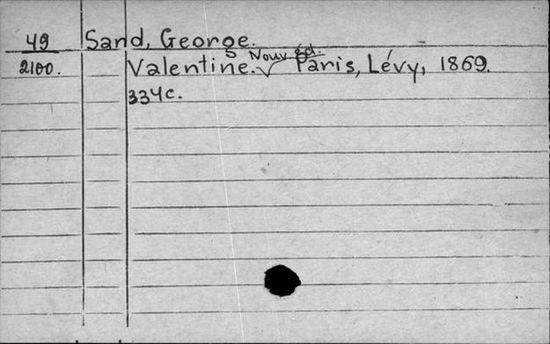 49 Sand, George.
2100. Valentine. Nouv. éd. Paris, Lévy, 1869.
334c.